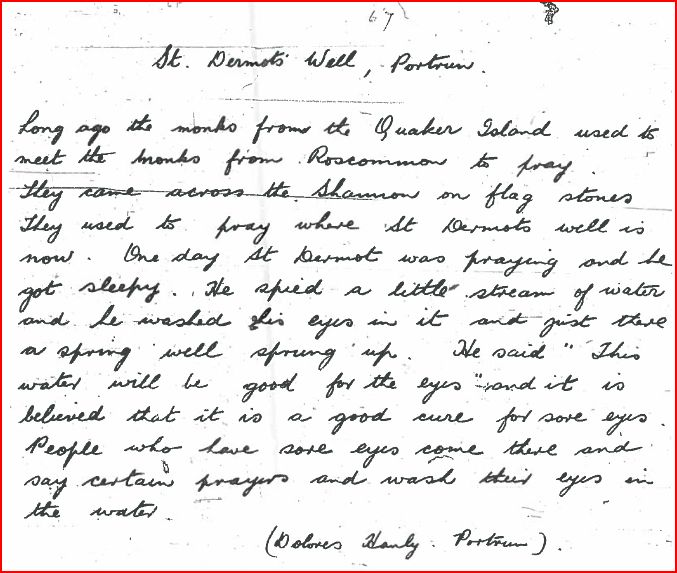 67
St. Dermots' Well, Portrun.
Long ago the monks from the Quaker Island used to
meet the monks from Roscommon to pray.
They came across the Shannon on flag stones
They used to pray where St Dermots well is
now. One day St Dermot was praying and he
got sleepy. He spied a little stream of water
and he washed his eyes in it and just there
a spring well sprung up. He said "This
water will be good for the eyes" and it is
believed that it is a good cure for sore eyes.
People who have sore eyes come there and
say certain prayers and wash their eyes in
the water.
(Dolores Hanly. Portrun).